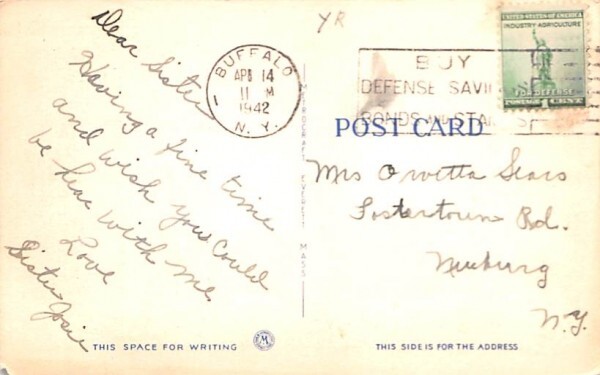 Dear Sister
Having a fine time
and wish you could
be hear with me.
Love
Sister Josie
THIS SPACE FOR WRITING
YR
BUFFALO
APR 14
11 M
1942
N.Y.
BUY
DEFENSE SAVINGS
BONDS AND STAMPS
UNITED STATES OF AMERICA
INDUSTRY AGRICULTURE
FOR DEFENSE
POSTAGE 1 CENT
POST CARD
Mrs Orvetta Sears
Fostertown Rd.
Newburg
N.Y.
THIS SIDE IS FOR THE ADDRESS